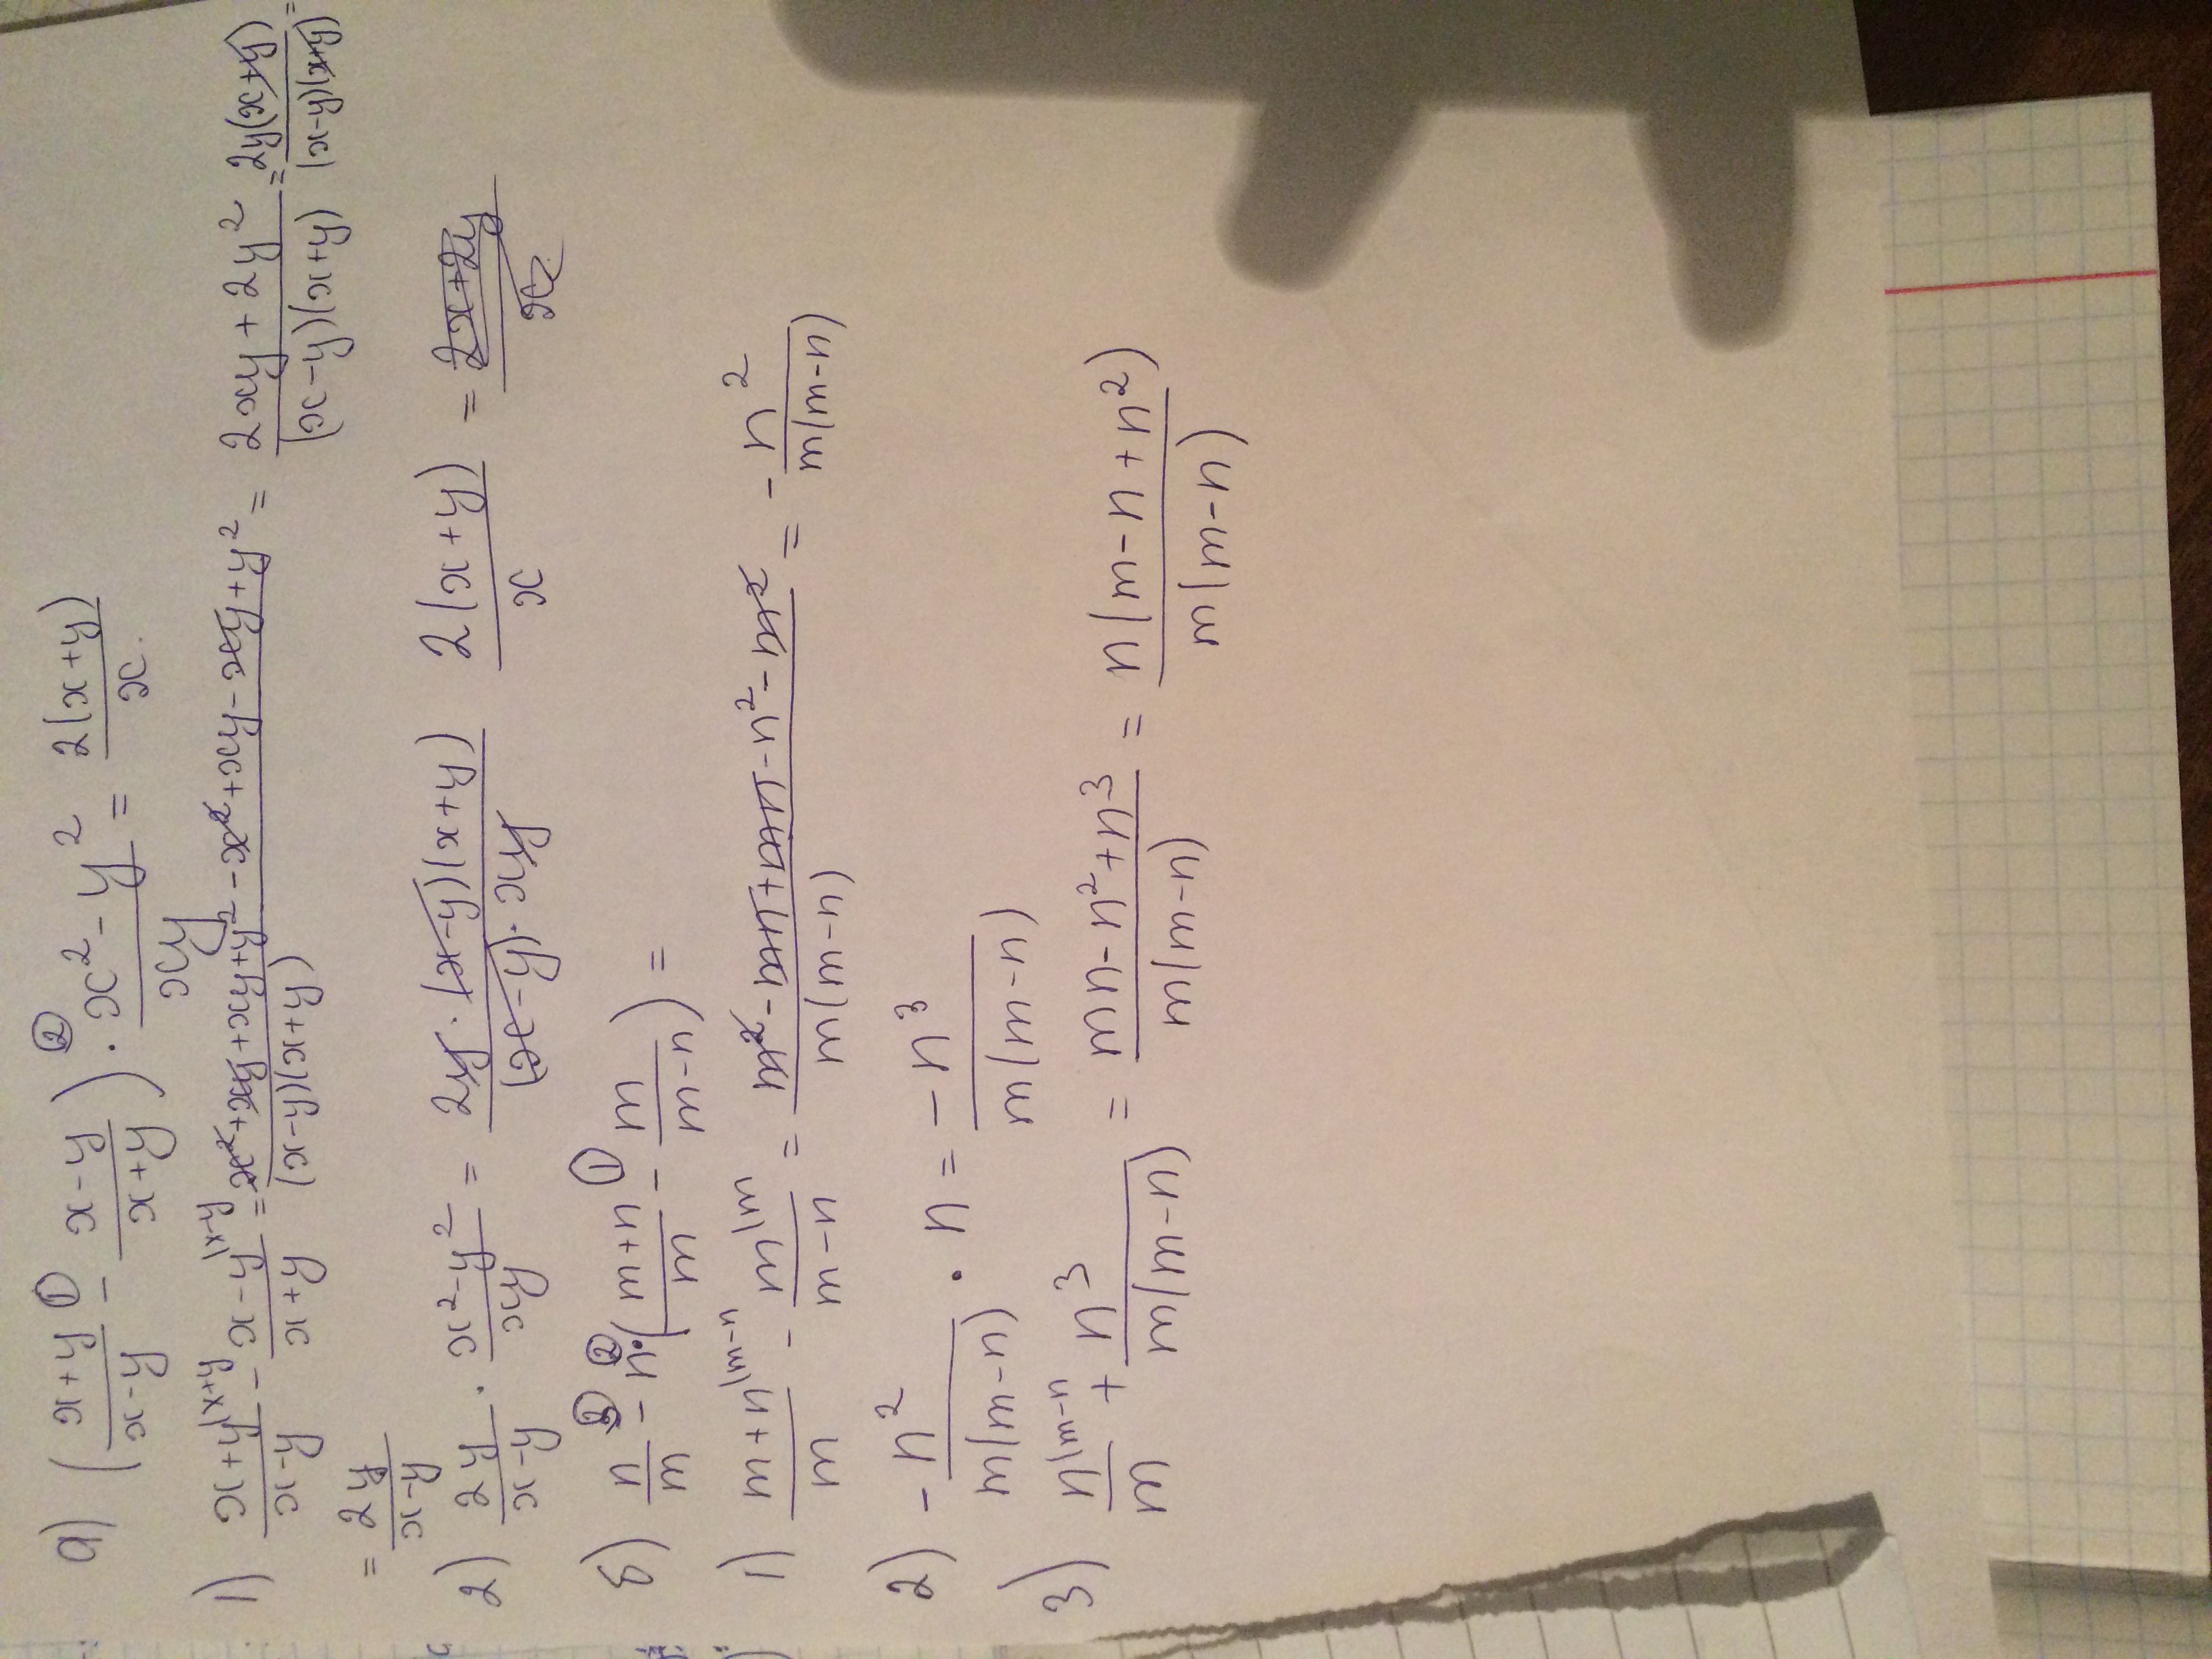 а) ((x+y)/(x-y) ① - (x-y)/(x+y)) ② · (x² - y²)/(xy) = 2(x+y)/x.
1) (x+y)/(x-y) |x+y - (x-y)/(x+y) |x-y = (x²+xy+xy+y²-x²+xy-xy+y²)/((x-y)(x+y)) = (2xy+2y²)/((x-y)(x+y)) = 2y(x+y)/((x-y)(x+y)) =
= 2y/(x-y)
2) 2y/(x-y) · (x²-y²)/(xy) = (2y·(x-y)(x+y))/((x-y)·xy) 2(x+y)/x = (2x+2y)/x
б) n/m ③ - n ② · ((m+n)/m ① - m/(m-n)) =
1) (m+n)/m |m-n - m/(m-n) |m = (m²-mn+mn-n²-m²)/(m(m-n)) = - n²/(m(m-n))
2) - n²/(m(m-n)) · n = - n³/(m(m-n))
3) n/m |m-n + n³/(m(m-n)) = (mn-n²+n³)/(m(m-n)) = n(m-n+n²)/(m(m-n))